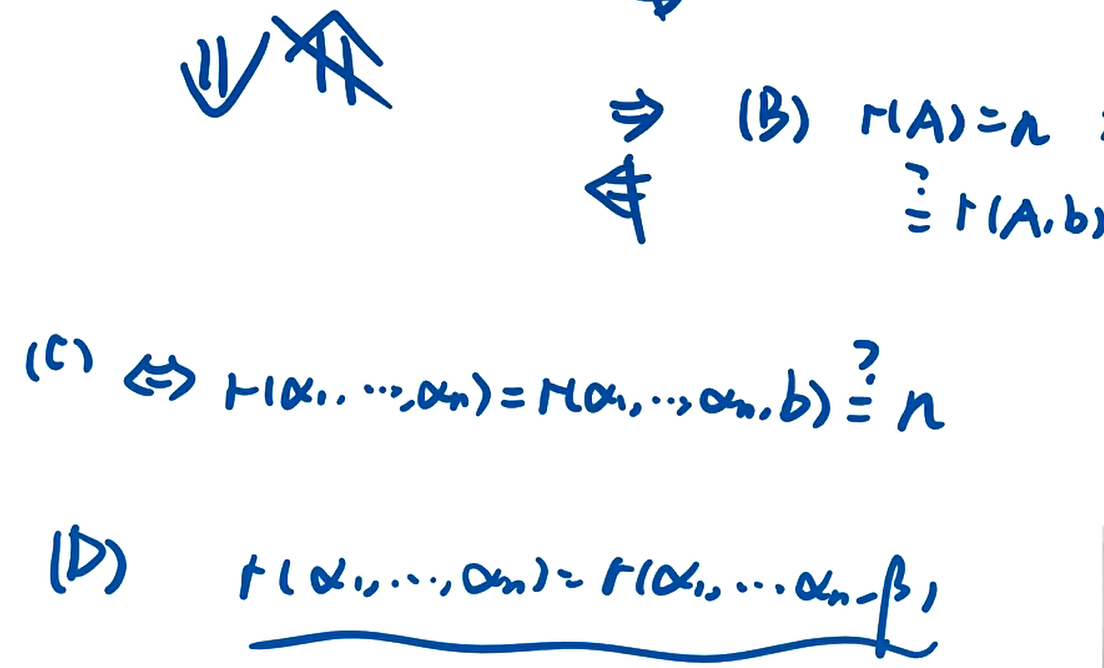 ⇓ ⇑
⇒ (B) r(A)=n
⇐ ?= r(A,b)
(C) ⇔ r(α₁,…,αₙ)=r(α₁,…,αₙ,b) ?= n
(D) r(α₁,…,αₙ)=r(α₁,…αₙ,β)